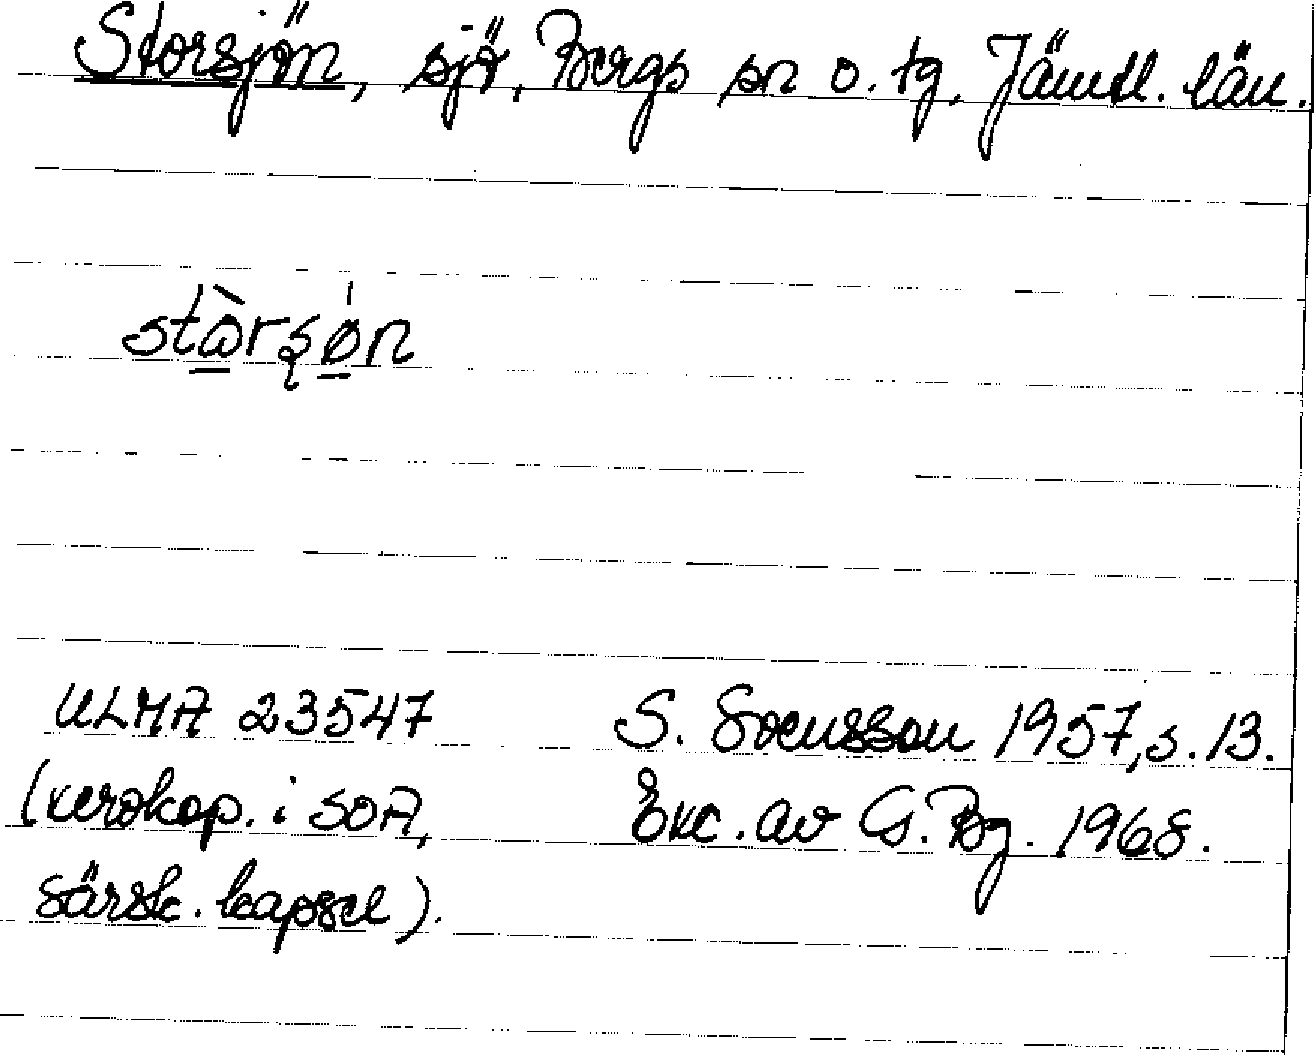 Storsjön, sjö, Bergs sn o. tg, Jämtl. län.
stὼ̲rʂø̲̍n
ULMA 23547 S. Svensson 1957, s. 13.
(xerokop. i SOA, Exc. av G. Bg. 1968.
särsk. kapsel).